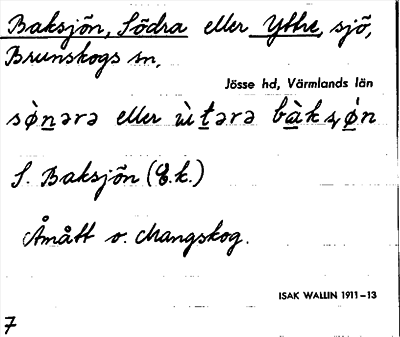 Baksjön, Södra eller Yttre, sjö,
Brunskogs sn,
Jösse hd, Värmlands län
sø̀nərə eller ùtərə bàksøn
S. Baksjön (E.k.)
Åmått o. Mangskog.
ISAK WALLIN 1911–13
7